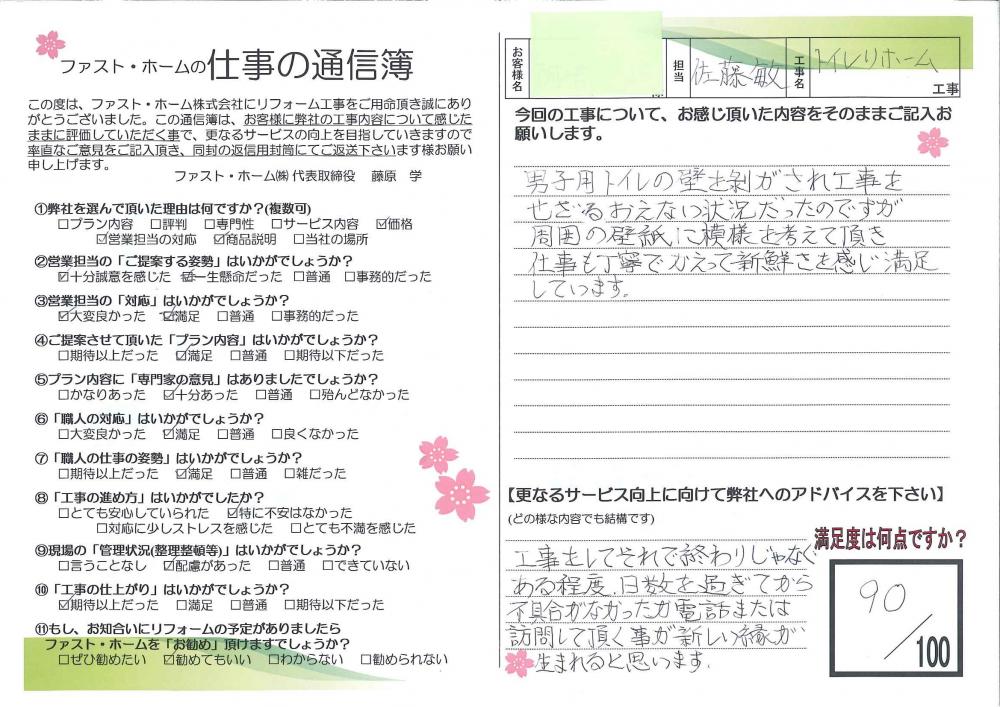 ファスト・ホームの仕事の通信簿
この度は、ファスト・ホーム株式会社にリフォーム工事をご用命頂き誠にあり
がとうございました。この通信簿は、お客様に弊社の工事内容について感じた
ままに評価していただく事で、更なるサービスの向上を目指していきますので
率直なご意見をご記入頂き、同封の返信用封筒にてご返送下さいます様お願い
申し上げます。
ファスト・ホーム㈱ 代表取締役 藤原 学
①弊社を選んで頂いた理由は何ですか？(複数可)
□プラン内容 □評判 □専門性 □サービス内容 ☑価格
☑営業担当の対応 ☑商品説明 □当社の場所
②営業担当の「ご提案する姿勢」はいかがでしょうか？
☑十分誠意を感じた ☑一生懸命だった □普通 □事務的だった
③営業担当の「対応」はいかがでしょうか？
☑大変良かった ☑満足 □普通 □事務的だった
④ご提案させて頂いた「プラン内容」はいかがでしょうか？
□期待以上だった ☑満足 □普通 □期待以下だった
⑤プラン内容に「専門家の意見」はありましたでしょうか？
□かなりあった ☑十分あった □普通 □殆んどなかった
⑥「職人の対応」はいかがでしょうか？
□大変良かった ☑満足 □普通 □良くなかった
⑦「職人の仕事の姿勢」はいかがでしょうか？
□期待以上だった ☑満足 □普通 □雑だった
⑧「工事の進め方」はいかがでしたか？
□とても安心していられた ☑特に不安はなかった
□対応に少しストレスを感じた □とても不満を感じた
⑨現場の「管理状況(整理整頓等)」はいかがでしょうか？
□言うことなし ☑配慮があった □普通 □できていない
⑩「工事の仕上がり」はいかがでしょうか？
☑期待以上だった □満足 □普通 □期待以下だった
⑪もし、お知合いにリフォームの予定がありましたら
ファスト・ホームを「お勧め」頂けますでしょうか？
□ぜひ勧めたい ☑勧めてもいい □わからない □勧められない
お客様名 様 担当 佐藤敏 工事名 トイレリホーム 工事
今回の工事について、お感じ頂いた内容をそのままご記入お
願いします。
男子用トイレの壁も剥がされ工事を
せざるおえない状況だったのですが
周囲の壁紙に模様を考えて頂き
仕事も丁寧でかえって新鮮さを感じ満足
しています。
【更なるサービス向上に向けて弊社へのアドバイスを下さい】
(どの様な内容でも結構です)
工事をしてそれで終わりじゃなく
ある程度、日数を過ぎてから
不具合がなかったか電話または
訪問して頂く事が新しい縁が
生まれると思います。
満足度は何点ですか？
90/100